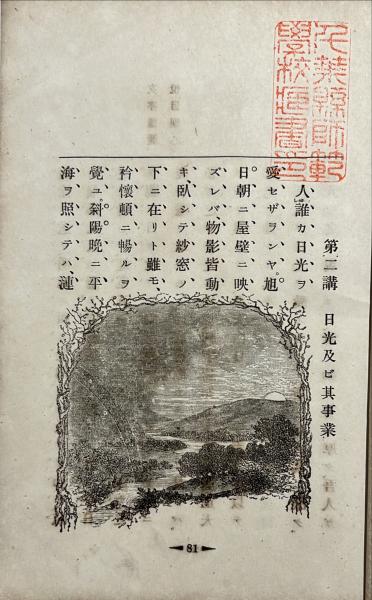 千葉縣師範
學校圖書印
第二講 日光及ビ其事業
人誰カ日光ヲ
愛セザランヤ。旭
日朝ニ屋壁ニ映
ズレバ、物影皆動
キ、臥シテ紗窓ノ
下ニ在リト雖モ、
衿懷頓ニ暢ルヲ
覺ユ。斜陽晩ニ平
海ヲ照シテハ、漣
81